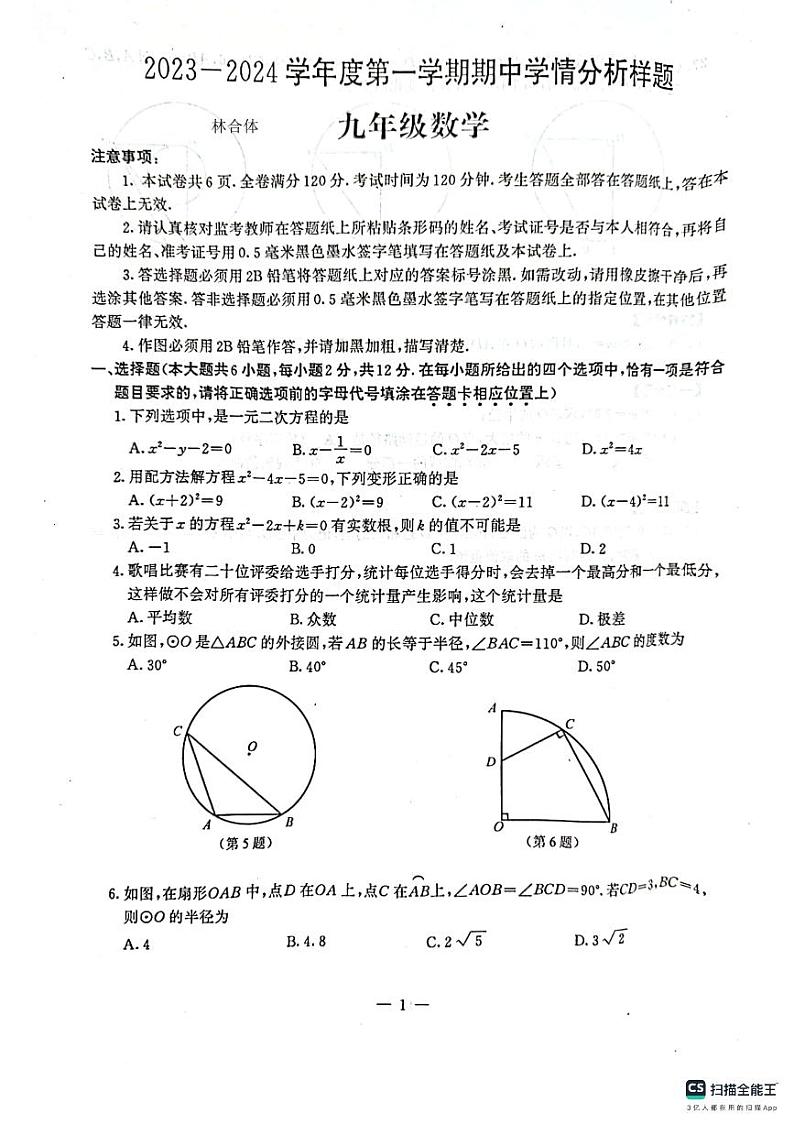 2023—2024 学年度第一学期期中学情分析样题
林合体
九年级数学
注意事项：
1. 本试卷共6页.全卷满分120分.考试时间为120分钟.考生答题全部答在答题纸上,答在本
试卷上无效.
2.请认真核对监考教师在答题纸上所粘贴条形码的姓名、考试证号是否与本人相符合,再将自
己的姓名、准考证号用0.5毫米黑色墨水签字笔填写在答题纸及本试卷上.
3.答选择题必须用2B铅笔将答题纸上对应的答案标号涂黑.如需改动,请用橡皮擦干净后,再
选涂其他答案.答非选择题必须用0.5毫米黑色墨水签字笔写在答题纸上的指定位置,在其他位置
答题一律无效.
4.作图必须用2B铅笔作答,并请加黑加粗,描写清楚.
一、选择题(本大题共6小题,每小题2分,共12分.在每小题所给出的四个选项中,恰有一项是符合
题目要求的,请将正确选项前的字母代号填涂在答题卡相应位置上)
1.下列选项中,是一元二次方程的是
A. x²-y-2=0 B. x-1/x=0 C. x²-2x-5 D. x²=4x
2.用配方法解方程x²-4x-5=0,下列变形正确的是
A. (x+2)²=9 B. (x-2)²=9 C. (x-2)²=11 D. (x-4)²=11
3.若关于x的方程x²-2x+k=0有实数根,则k的值不可能是
A. -1 B. 0 C. 1 D. 2
4.歌唱比赛有二十位评委给选手打分,统计每位选手得分时,会去掉一个最高分和一个最低分,
这样做不会对所有评委打分的一个统计量产生影响,这个统计量是
A. 平均数 B. 众数 C. 中位数 D. 极差
5.如图,⊙O是△ABC的外接圆,若AB的长等于半径,∠BAC=110°,则∠ABC的度数为
A. 30° B. 40° C. 45° D. 50°
C
O
A
B
(第5题)
A
C
D
O
B
(第6题)
6.如图,在扇形OAB中,点D在OA上,点C在⌒AB上,∠AOB=∠BCD=90°.若CD=3,BC=4,
则⊙O的半径为
A. 4 B. 4.8 C. 2√5 D. 3√2
— 1 —
CS 扫描全能王
3亿人都在用的扫描App